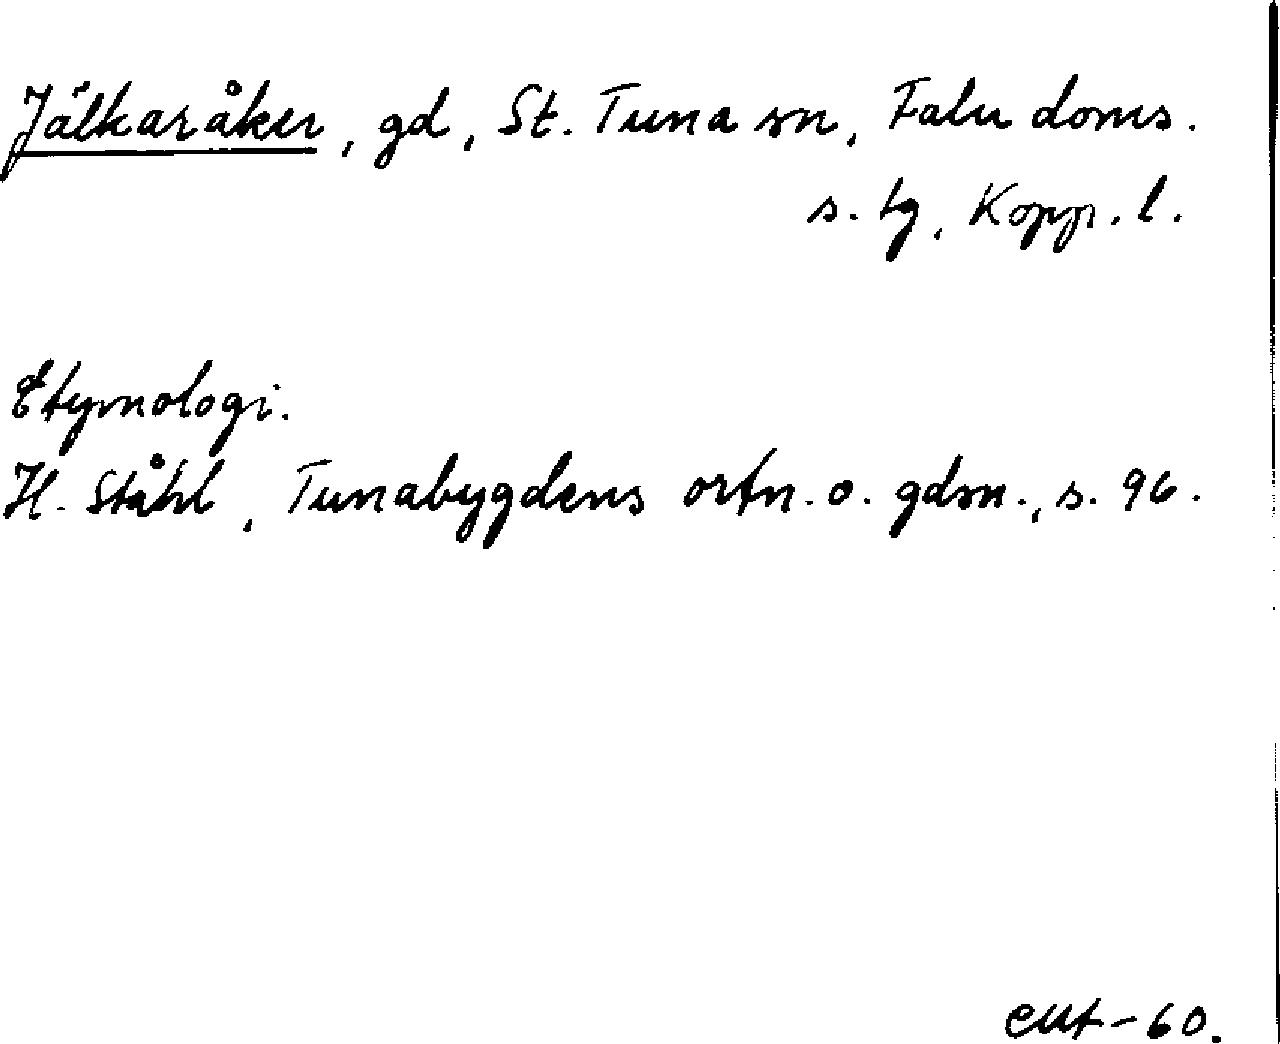 Jälkaråker, gd, St. Tuna sn, Falu doms.
s. tg, Kopp. l.
Etymologi.
H. Ståhl, Tunabygdens ortn. o. gdsn., s. 96.
-60.